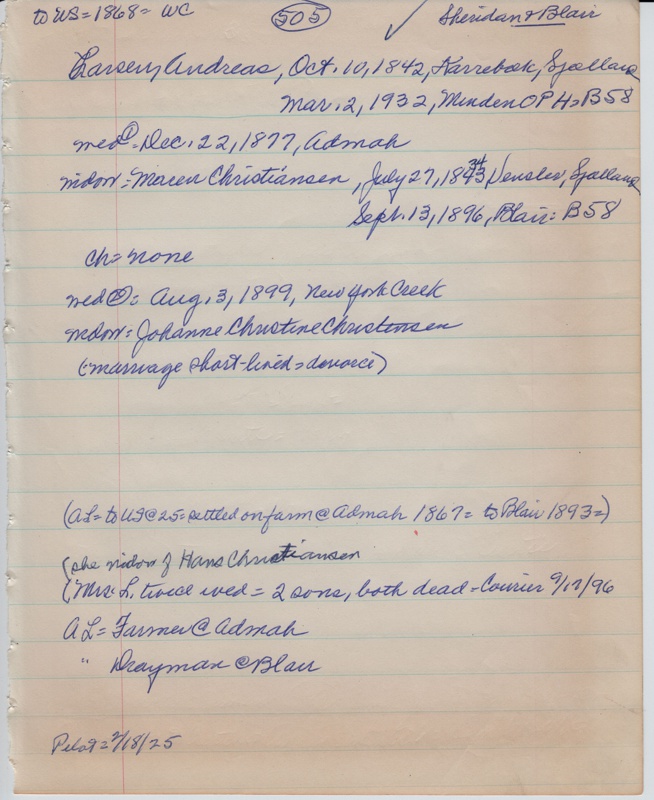 to US = 1868 = WC
505
Sheridan & Blair
Larsen, Andreas, Oct. 10, 1842, Karrebæk, Sjælland
Mar. 2, 1932, Minden OPH = B58
wed ① = Dec. 22, 1877, Admah
widow = Maren Christiansen, July 27, 1843 34 Sjælland
Sept. 13, 1896, Blair = B58
ch = none
wed ② = Aug. 3, 1899, New York Creek
widow = Johanne Christine Christensen
(marriage short-lived = divorce)
(AL = to US @ 25 = settled on farm @ Admah 1867 = to Blair 1893 =)
(she widow of Hans Christiansen
(Mrs. L. twice wed = 2 sons, both dead = Courier 9/17/96
AL = Farmer @ Admah
" Drayman @ Blair
Pilot = 2/18/25